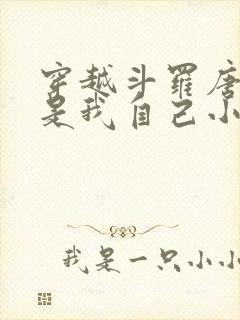 穿越斗罗唐
是我自己小
我是一只小小